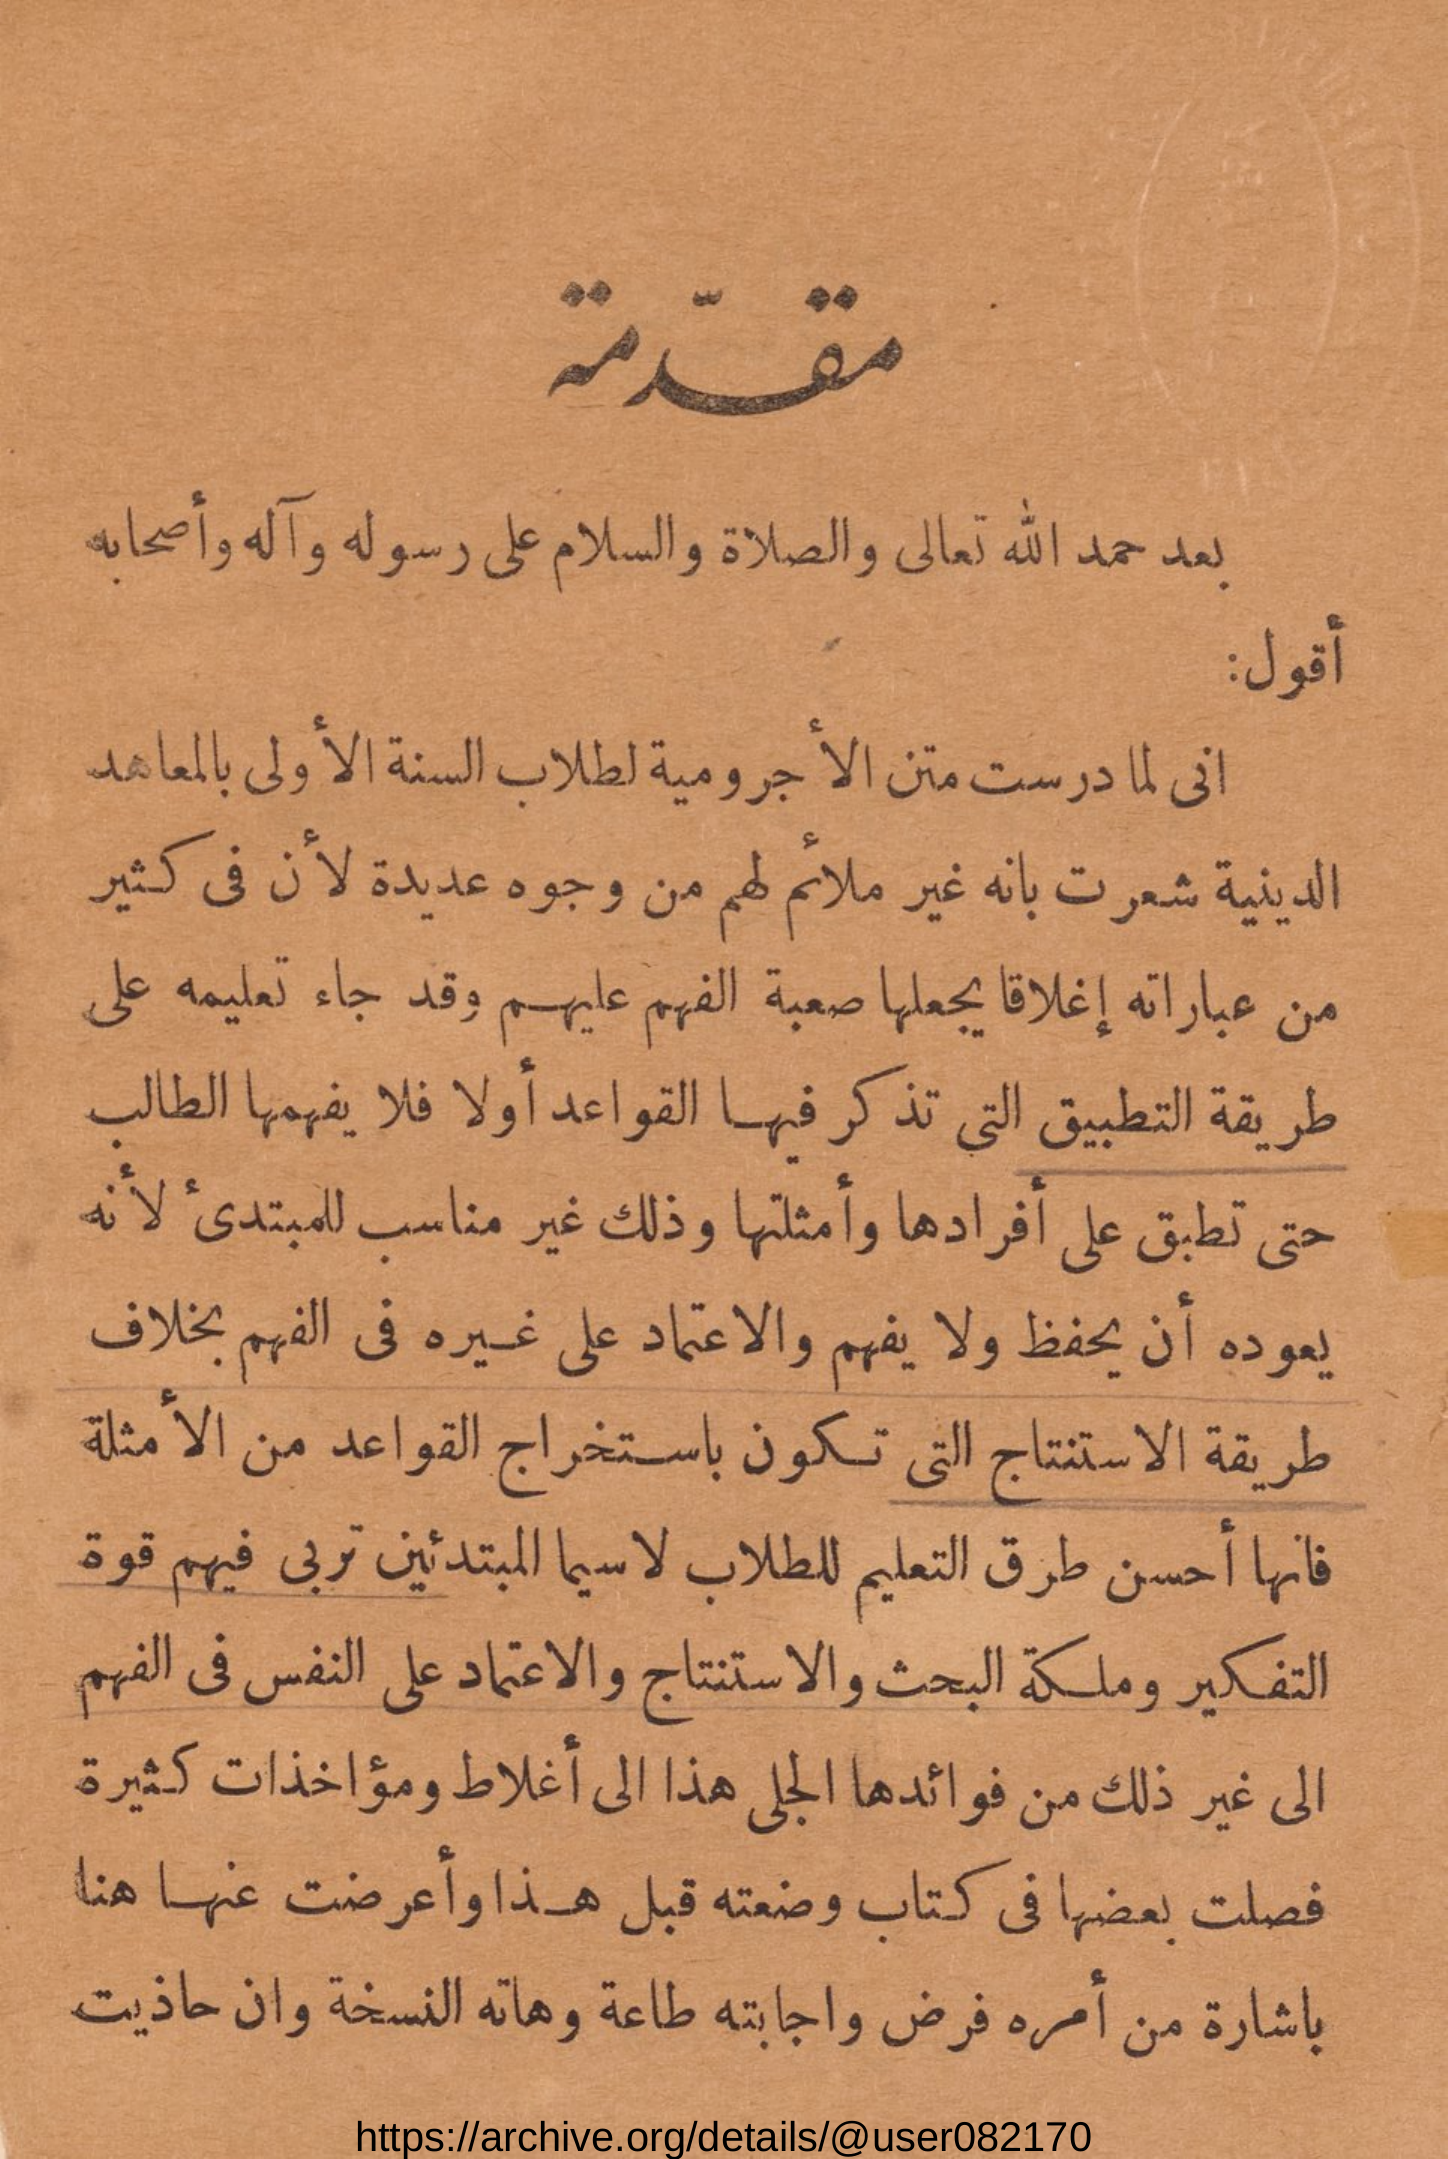 مقدّمة
بعد حمد الله تعالى والصلاة والسلام على رسوله وآله وأصحابه
أقول:
انى لما درست متن الأجرومية لطلاب السنة الأولى بالمعاهد
الدينية شعرت بانه غير ملائم لهم من وجوه عديدة لأن فى كثير
من عباراته إغلاقا يجعلها صعبة الفهم عليهم وقد جاء تعليمه على
طريقة التطبيق التى تذكر فيها القواعد أولا فلا يفهمها الطالب
حتى تطبق على أفرادها وأمثلتها وذلك غير مناسب للمبتدئ لأنه
يعوده أن يحفظ ولا يفهم والاعتماد على غيره فى الفهم بخلاف
طريقة الاستنتاج التى تكون باستخراج القواعد من الأمثلة
فانها أحسن طرق التعليم للطلاب لاسيما المبتدئين تربى فيهم قوة
التفكير وملكة البحث والاستنتاج والاعتماد على النفس فى الفهم
الى غير ذلك من فوائدها الجلى هذا الى أغلاط ومؤاخذات كثيرة
فصلت بعضها فى كتاب وضعته قبل هذا وأعرضت عنها هنا
باشارة من أمره فرض واجابته طاعة وهاته النسخة وان حاذيت
https://archive.org/details/@user082170